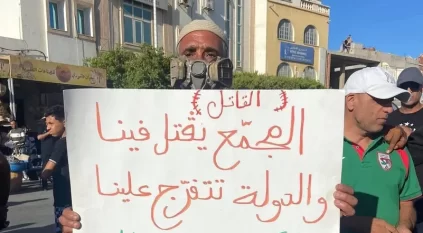 (القاتل)
المجمّع يقتل فينا
والدولة تتفرّج علينا